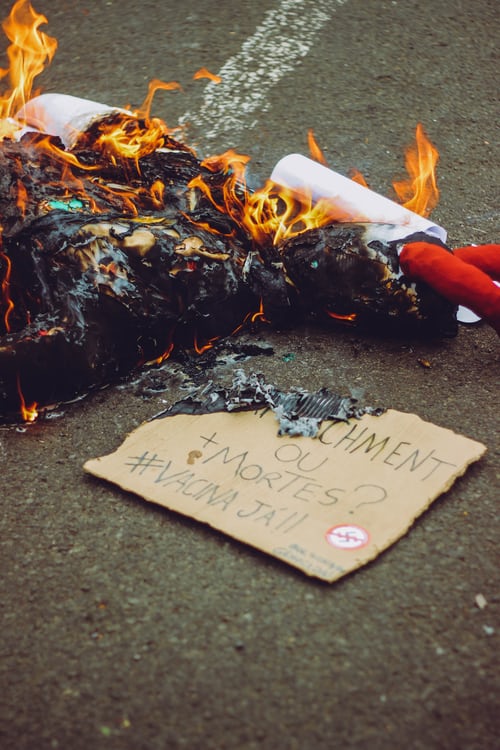 CHMENT
OU
+ MORTES?
#VACINA JÁ!!